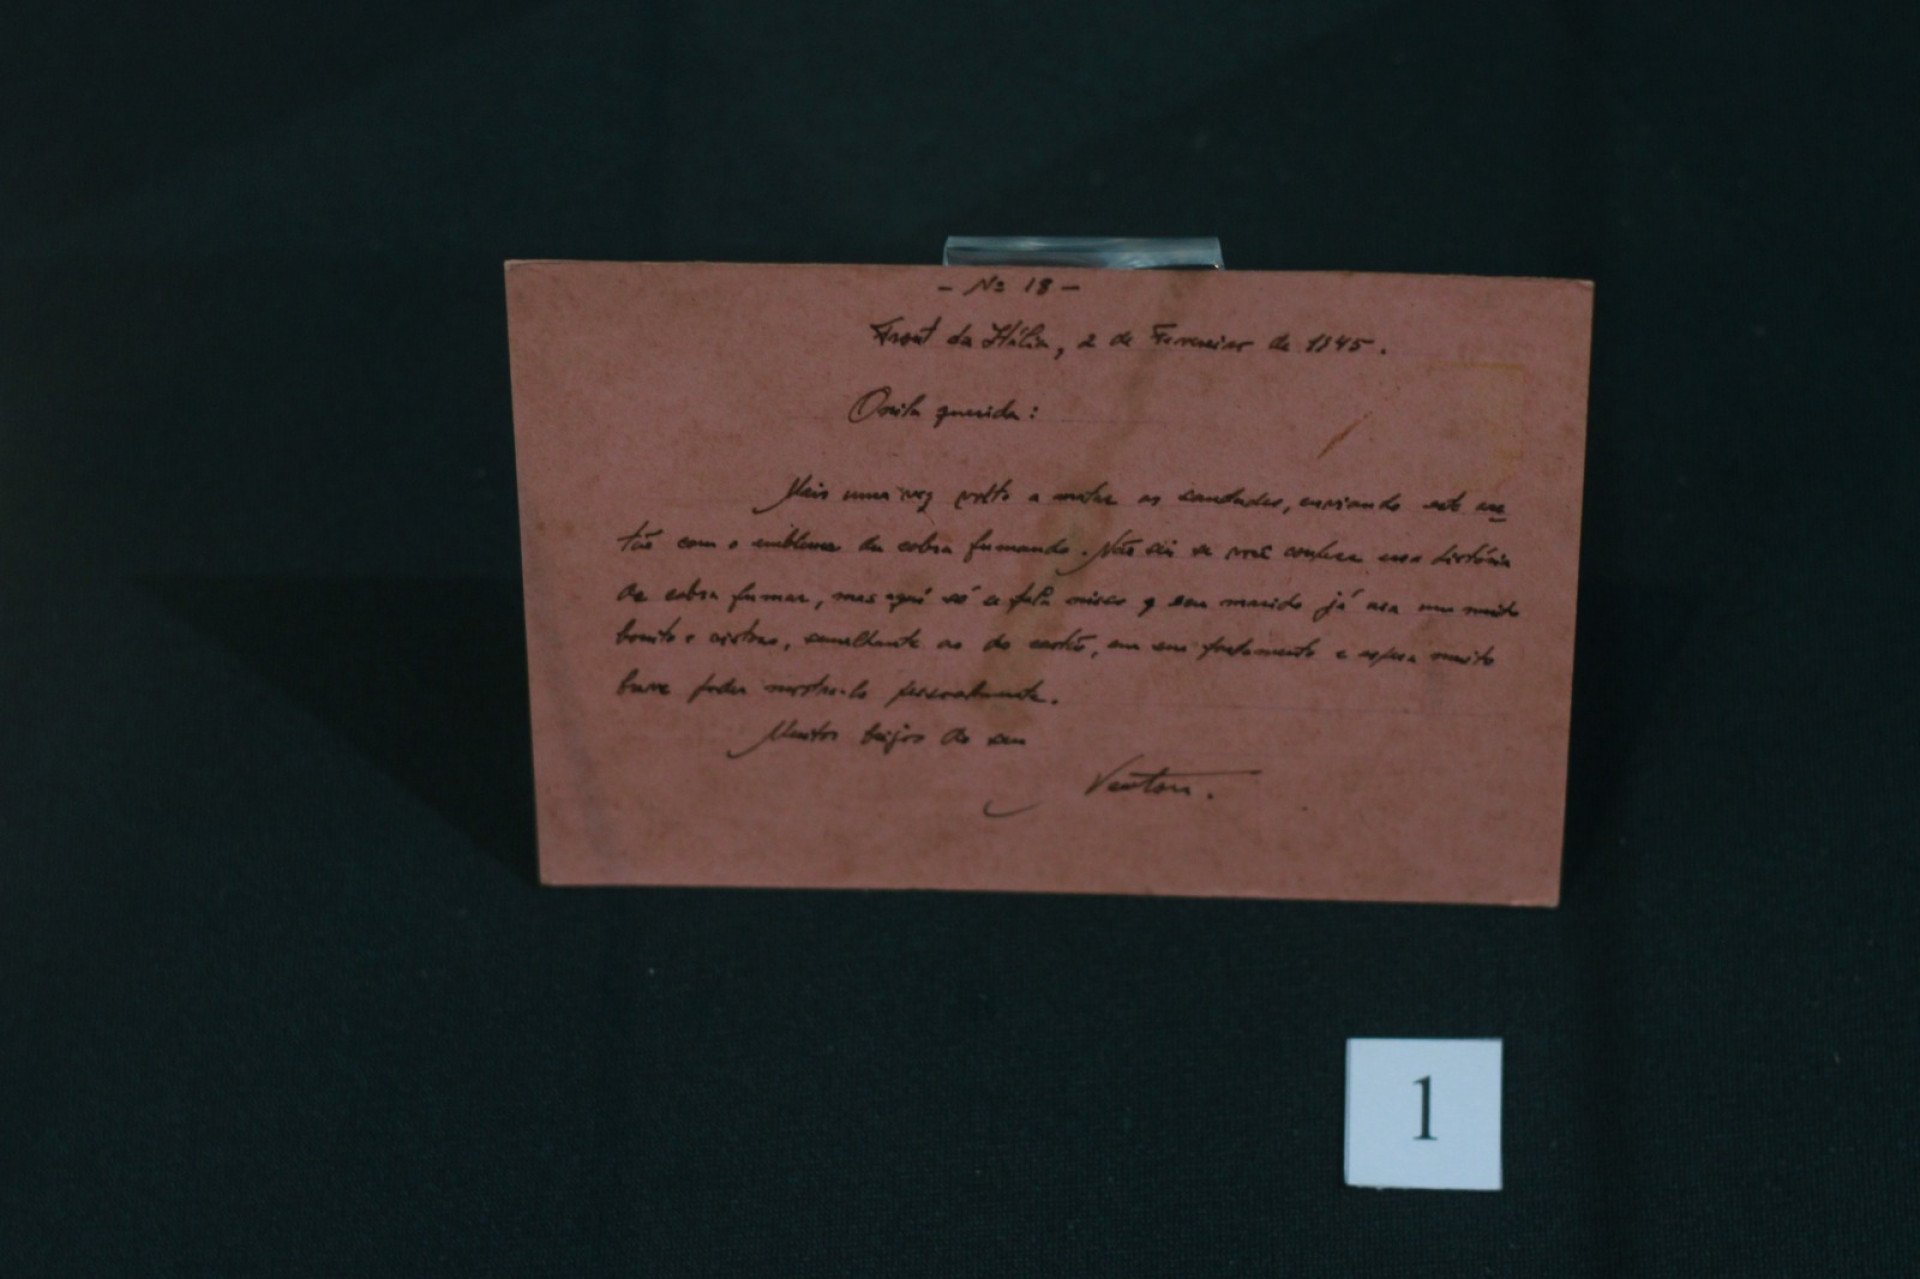 - Nº 18 -
Front da Itália, 2 de Fevereiro de 1945.
querida:
Mais uma vez volto a matar as saudades, enviando este car
tão com o emblema da cobra fumando. Não sei se você conhece essa história
de cobra fumar, mas aqui só se fala nisso q seu marido já usa um muito
bonito e vistoso, semelhante ao do cartão, em seu fardamento e espera muito
breve poder mostra-lo pessoalmente.
Muitos beijos do seu
1